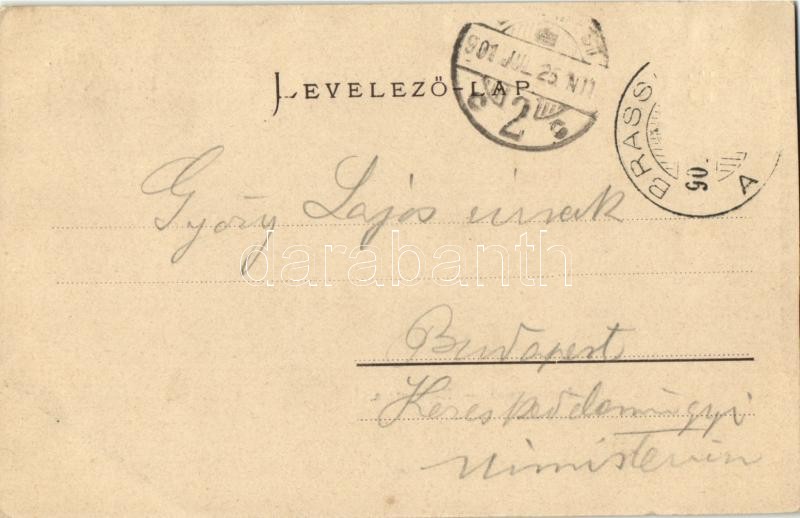 901 JUL 25 N11
LEVELEZŐ-LAP
2
BRASS
90
A
Győry Lajos úrnak
darabanth
Budapest
Kereskedelemügyi
Ministerium